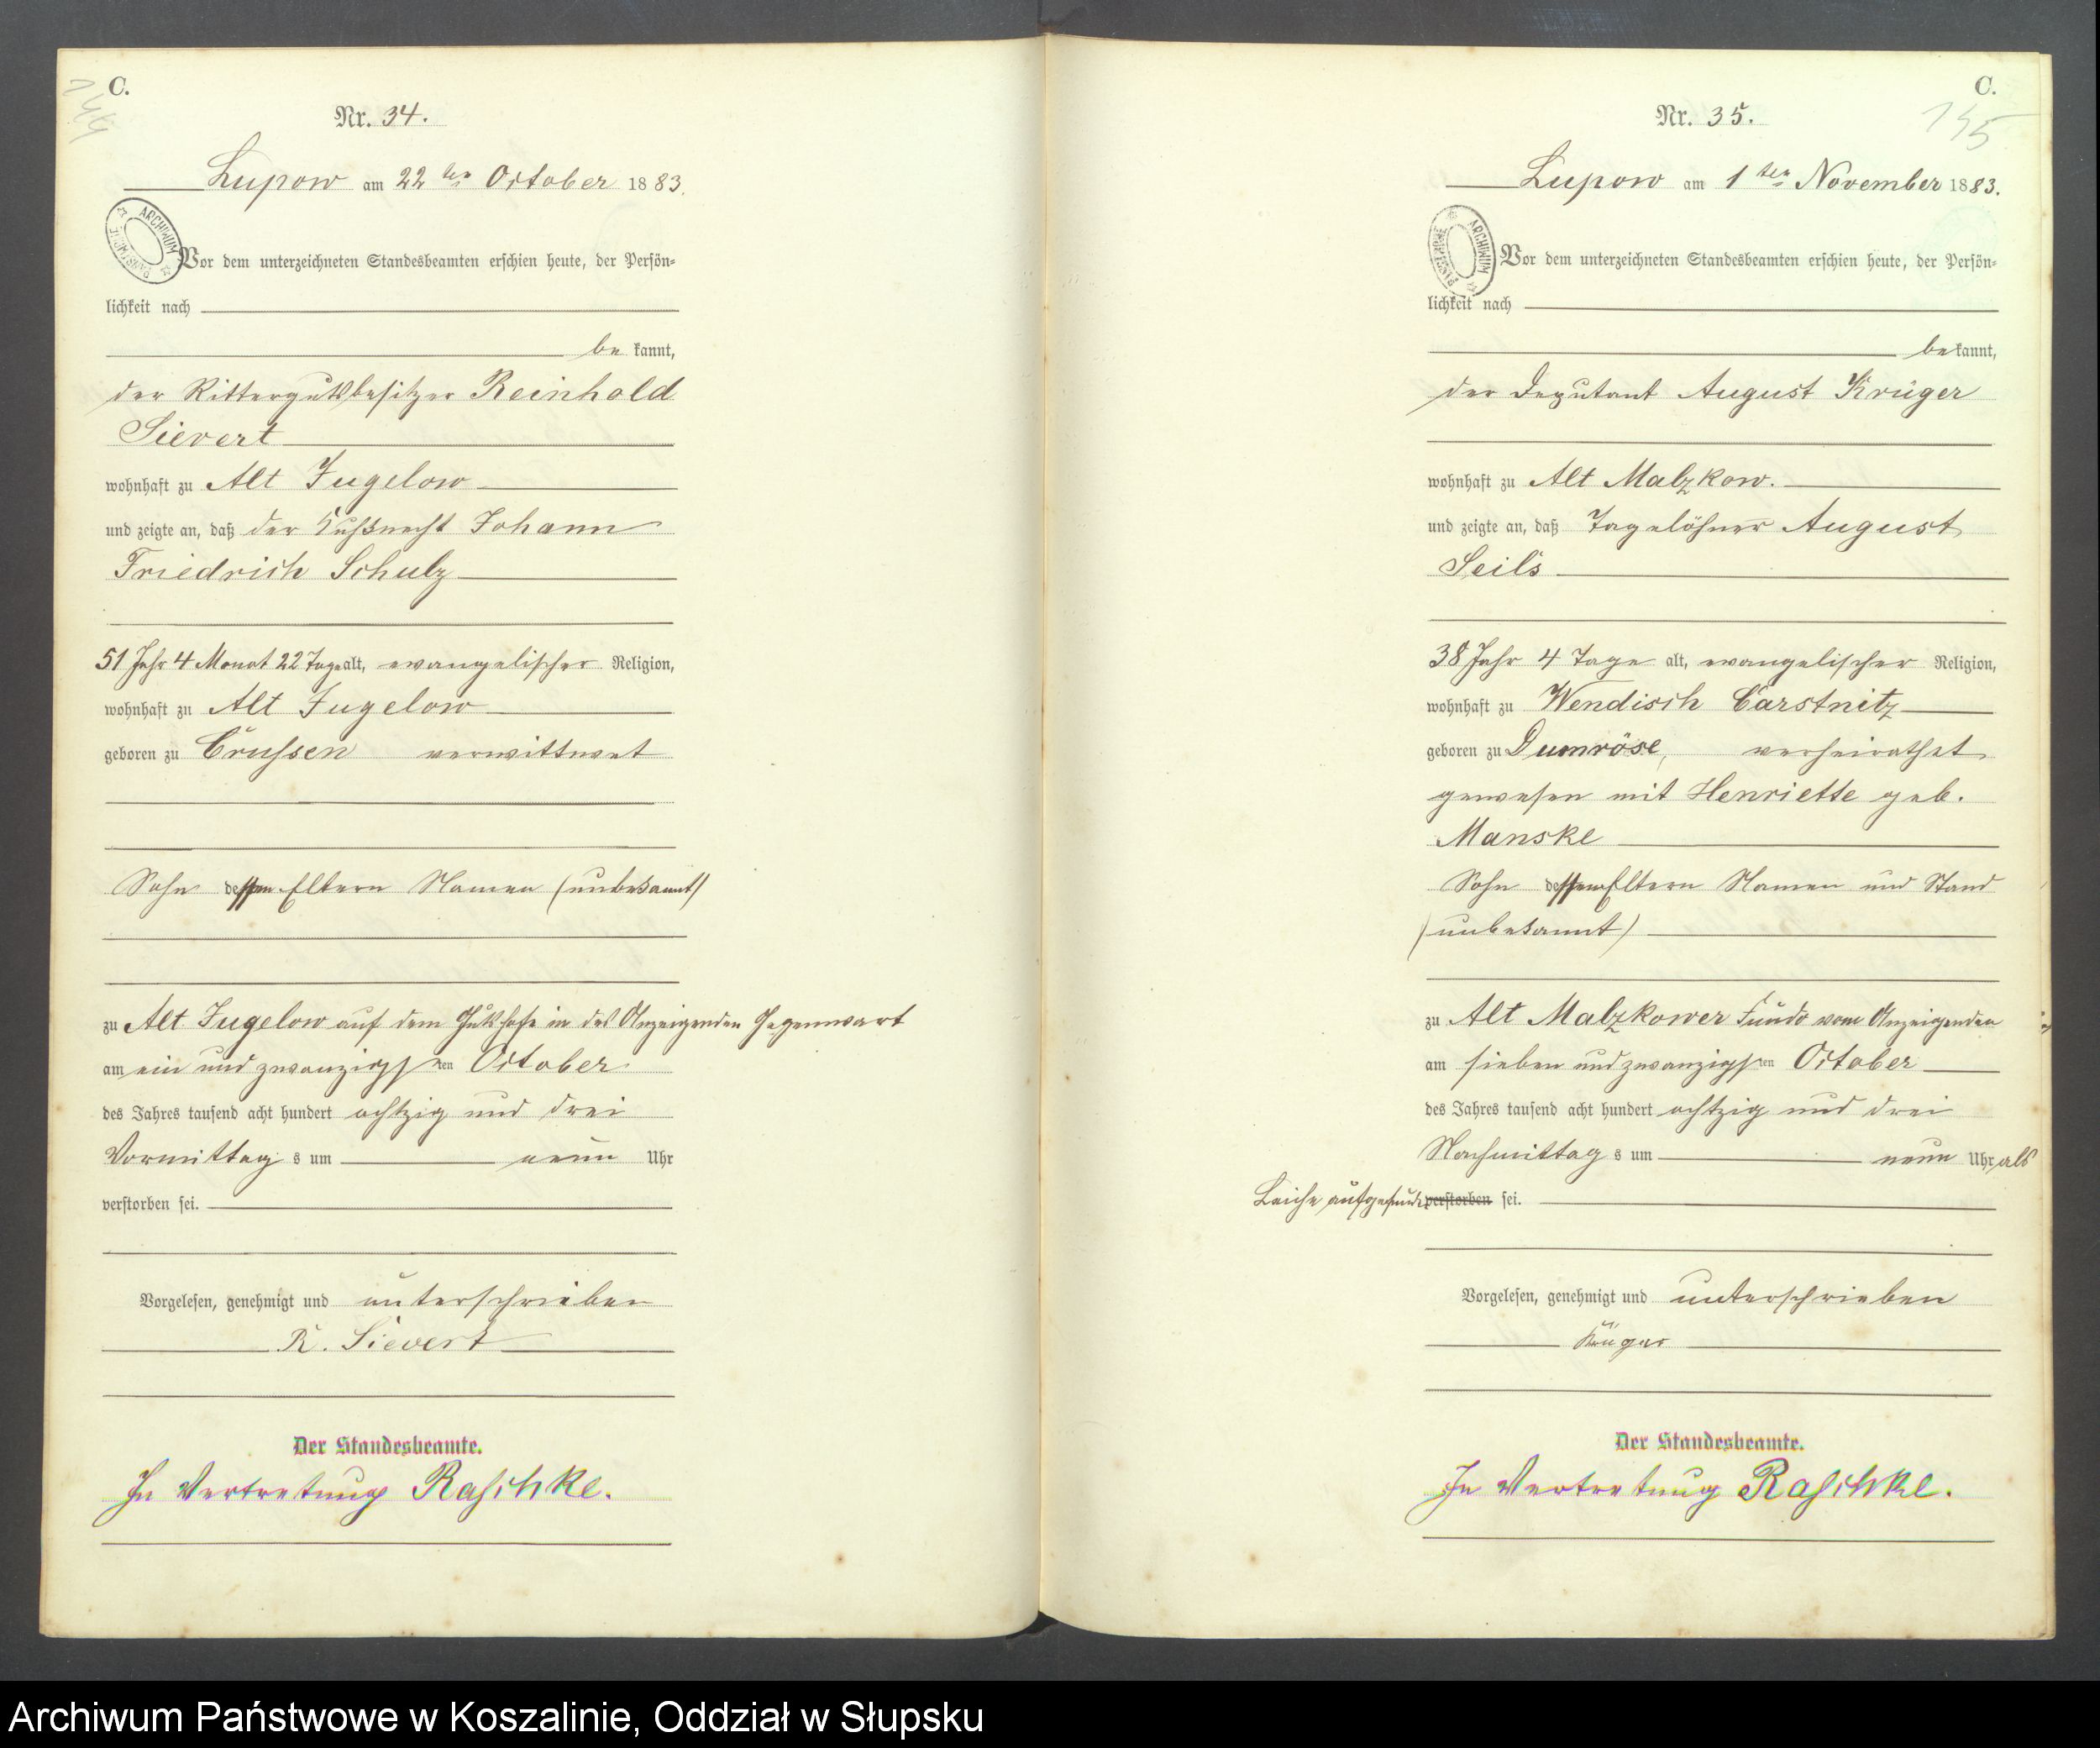 C.
Nr. 34.
Lupow am 22ten October 1883.
ARCHIWUM PAŃSTWOWE
Vor dem unterzeichneten Standesbeamten erschien heute, der Persön-
lichkeit nach
be kannt,
der Rittergutsbesitzer Reinhold
Sievert
wohnhaft zu Alt Jugelow
und zeigte an, daß der Johann
Friedrich Schulz
51 Jahr 4 Monat 22 Tage alt, evangelischer Religion,
wohnhaft zu Alt Jugelow
geboren zu Crussen verwittwet
Sohn dessen Eltern Namen (unbekannt)
zu Alt Jugelow auf dem Gutshofe in des Anzeigenden Gegenwart
am ein und zwanzigsten October
des Jahres tausend acht hundert achtzig und drei
Vormittags um neun Uhr
verstorben sei.
Vorgelesen, genehmigt und unterschrieben
R. Sievert
Der Standesbeamte.
In Vertretung Raschke.
C.
145
Nr. 35.
Lupow am 1ten November 1883.
ARCHIWUM PAŃSTWOWE
Vor dem unterzeichneten Standesbeamten erschien heute, der Persön-
lichkeit nach
bekannt,
der Deputant August Krüger
wohnhaft zu Alt Malzkow.
und zeigte an, daß Tagelöhner August
Seils
38 Jahr 4 Tage alt, evangelischer Religion,
wohnhaft zu Wendisch Carstnitz
geboren zu Dumröse, verheirathet
gewesen mit Henriette geb.
Manske
Sohn dessen Eltern Namen und Stand
(unbekannt)
zu Alt Malzkower Fundo vom Anzeigenden
am sieben und zwanzigsten October
des Jahres tausend acht hundert achtzig und drei
Nachmittags um neun Uhr als
Leiche aufgefunden verstorben sei.
Vorgelesen, genehmigt und unterschrieben
Krüger
Der Standesbeamte.
In Vertretung Raschke.
Archiwum Państwowe w Koszalinie, Oddział w Słupsku